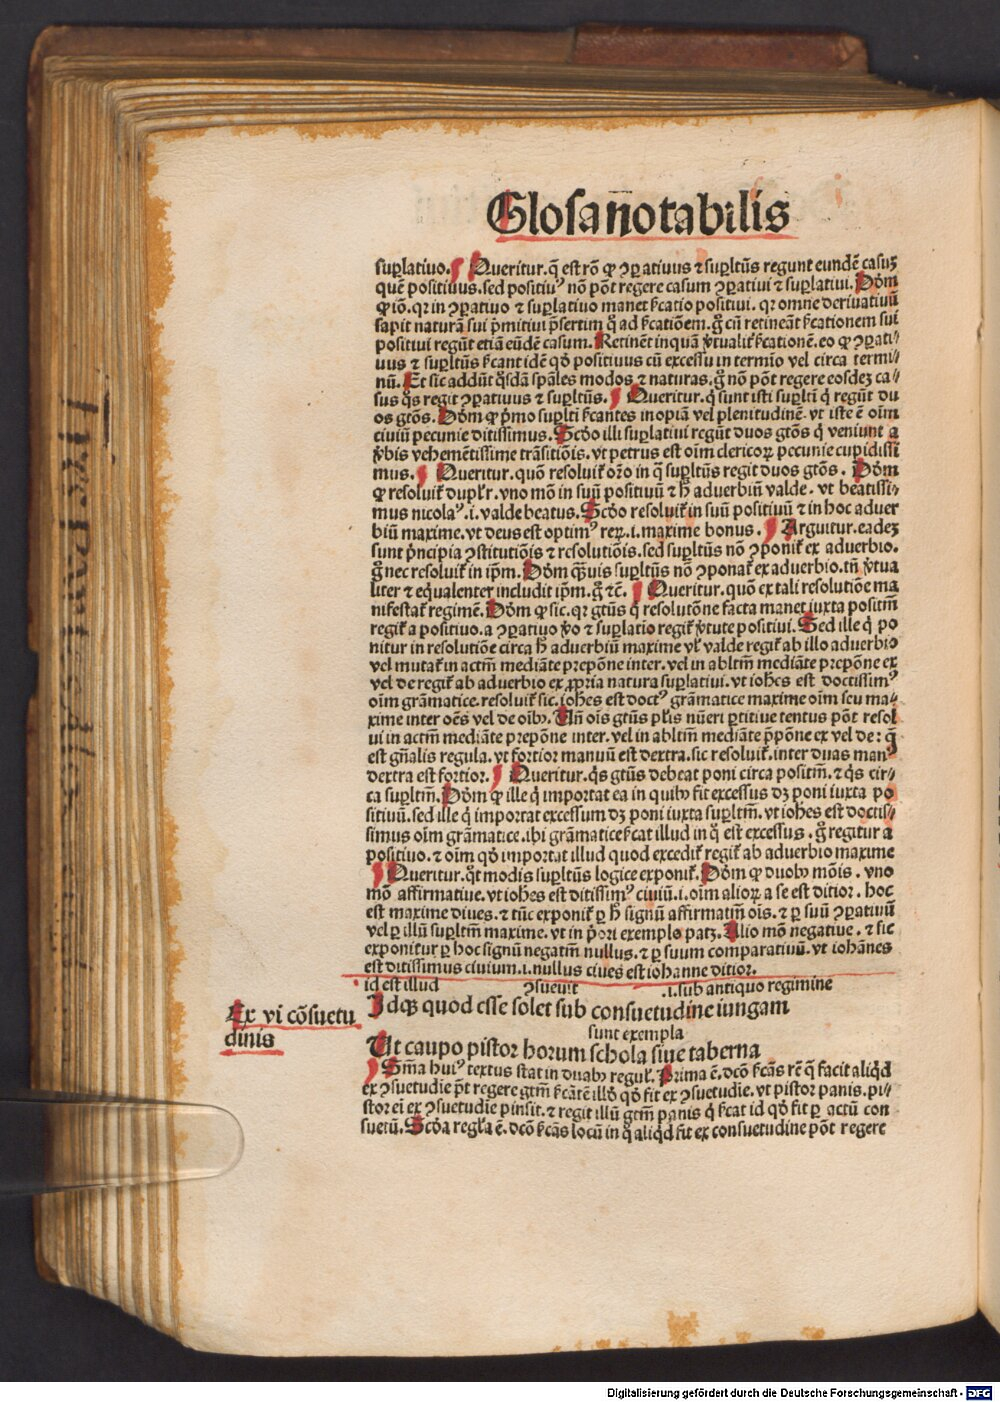 Glosa n̄otabilis
suꝑlatiuo. Queritur. q̄ est rō ꝙ ꝯꝑatiuus ⁊ suꝑltūs regunt eundē casuꝫ
quē positiuus. sed positiuꝰ nō pōt regere casum ꝯꝑatiui ⁊ suꝑlatiui. Dōm
ꝙ iō. qr in ꝯꝑatiuo ⁊ suꝑlatiuo manet ẜcatio positiui. qr omne deriuatiuū
sapit naturā sui pͥmitiui p̄sertim qͦ ad ẜcatiōem. gͦ cū retineāt ẜcationem sui
positiui regūt etiā eūdē casum. Retinēt inquā v̓tualit̓ ẜcationē. eo ꝙ ꝯꝑati⸗
uus ⁊ suꝑltūs ẜcant idē qd̓ positiuus cū excessu in termīo vel circa termi⸗
nū. Et sic addūt qͦsdā sp̄ales modos ⁊ naturas. gͦ nō pōt regere eosdeꝫ ca⸗
sus qͦs regit ꝯꝑatiuus ⁊ suꝑltūs. Queritur. q̄ sunt isti suꝑltī qͥ regūt du
os gtōs. Dōm ꝙ pͥmo suꝑltī ẜcantes inopiā vel plenitudinē. vt iste ē oīm
ciuiū pecunie ditissimus. Scd̓o illi suꝑlatiui regūt duos gtōs qͥ veniunt a
v̓bis vehemētissime trāsitiōis. vt petrus est oīm clericoꝝ pecunie cupidissi
mus. Queritur. quō resoluit̓ orō in qͣ suꝑltūs regit duos gtōs. Dōm
ꝙ resoluit̓ dupl̓r. vno mō in suū positiuū ⁊ h̓ aduerbiū valde. vt beatissi⸗
mus nicolaꝰ. i. valde beatus. Scd̓o resoluit̓ in suū positiuū ⁊ in hoc aduer
biū maxime. vt deus est optimꝰ reꝝ. i. maxime bonus. Arguitur. eadeꝫ
sunt pͥncipia ꝯstitutiōis ⁊ resolutiōis. sed suꝑltūs nō ꝯponit̓ ex aduerbio.
gͦ nec resoluit̓ in ip̄m. Dōm qͣ̄uis suꝑltūs nō ꝯponat̓ ex aduerbio. tn̄ v̓tua
liter ⁊ eqͥualenter includit ip̄m. gͦ ⁊c̄. Queritur. quō ex tali resolutiōe ma
nifestat̓ regimē. Dōm ꝙ sic. qr gtūs qͥ resolutōne facta manet iuxta positm̄
regit̓ a positiuo. a ꝯꝑatiuo v̓o ⁊ suꝑlatio regit̓ v̓tute positiui. Sed ille qͥ po
nitur in resolutiōe circa h̓ aduerbiū maxime vl̓ valde regit̓ ab illo aduerbio
vel mutat̓ in actm̄ mediāte prepōne inter. vel in abltm̄ mediāte prepōne ex
vel de regit̓ ab aduerbio ex ꝓpria natura suꝑlatiui. vt ioh̄es est doctissimꝰ
oīm grāmatice. resoluit̓ sic. ioh̄es est doctꝰ grāmatice maxime oīm seu ma⸗
xime inter oēs vel de oībꝰ. Uñ oīs gtūs pl̓is nūeri ꝑtitiue tentus pōt resol
ui in actm̄ mediāte prepōne inter. vel in abltm̄ mediāte p̄pōne ex vel de: qͣ
est gn̄alis regula. vt fortior manuū est dextra. sic resoluit̓. inter duas manꝰ
dextra est fortior. Queritur. qͥs gtūs debeat poni circa positm̄. ⁊ qͥs cir⸗
ca suꝑltm̄. Dōm ꝙ ille qͥ importat ea in quibꝰ fit excessus dꝫ poni iuxta po
sitiuū. sed ille qͥ importat excessum dꝫ poni iuxta suꝑltm̄. vt ioh̄es est doctis⸗
simus oīm grāmatice. ibi grāmatice ẜcat illud in qͦ est excessus. gͦ regitur a
positiuo. ⁊ oīm qd̓ importat illud quod excedit̓ regit̓ ab aduerbio maxime
Queritur. qͦt modis suꝑltūs logice exponit̓. Dōm ꝙ duobꝰ mōis. vno
mō affirmatiue. vt ioh̄es est ditissimꝰ ciuiū. i. oīm alioꝝ a se est ditior. hoc
est maxime diues. ⁊ tūc exponit̓ ꝑ h̓ signū affirmatm̄ oīs. ⁊ ꝑ suū ꝯꝑatiuū
vel ꝑ illū suꝑltm̄ maxime. vt in pͥori exemplo patꝫ. Alio mō negatiue. ⁊ sic
exponitur ꝑ hoc signū negatm̄ nullus. ⁊ ꝑ suum comparatiuū. vt iohānes
est ditissimus ciuium. i. nullus ciues est iohanne ditior.
id est illud ꝯsueuit .i. sub antiquo regimine
Idqꝫ quod esse solet sub consuetudine iungam
Ex vi cōsuetu
dinis
sunt exempla
Ut caupo pistor horum schola siue taberna
Sm̄a huiꝰ textus stat in duabꝰ regul̓. Prima ē. dcō ẜcās rē qͣ facit aliqͥd
ex ꝯsuetudīe p̄t regere gtm̄ ẜcātē illd̓ qd̓ fit ex ꝯsuetudīe. vt pistor panis. pi⸗
stor ei ex ꝯsuetudīe pinsit. ⁊ regit illū gtm̄ panis qͥ ẜcat id qd̓ fit ꝑ actū con
suetū. Scd̓a regl̓a ē. dcō ẜcās locū in qͦ aliqͥd fit ex consuetudine pōt regere
Digitalisierung gefördert durch die Deutsche Forschungsgemeinschaft - DFG